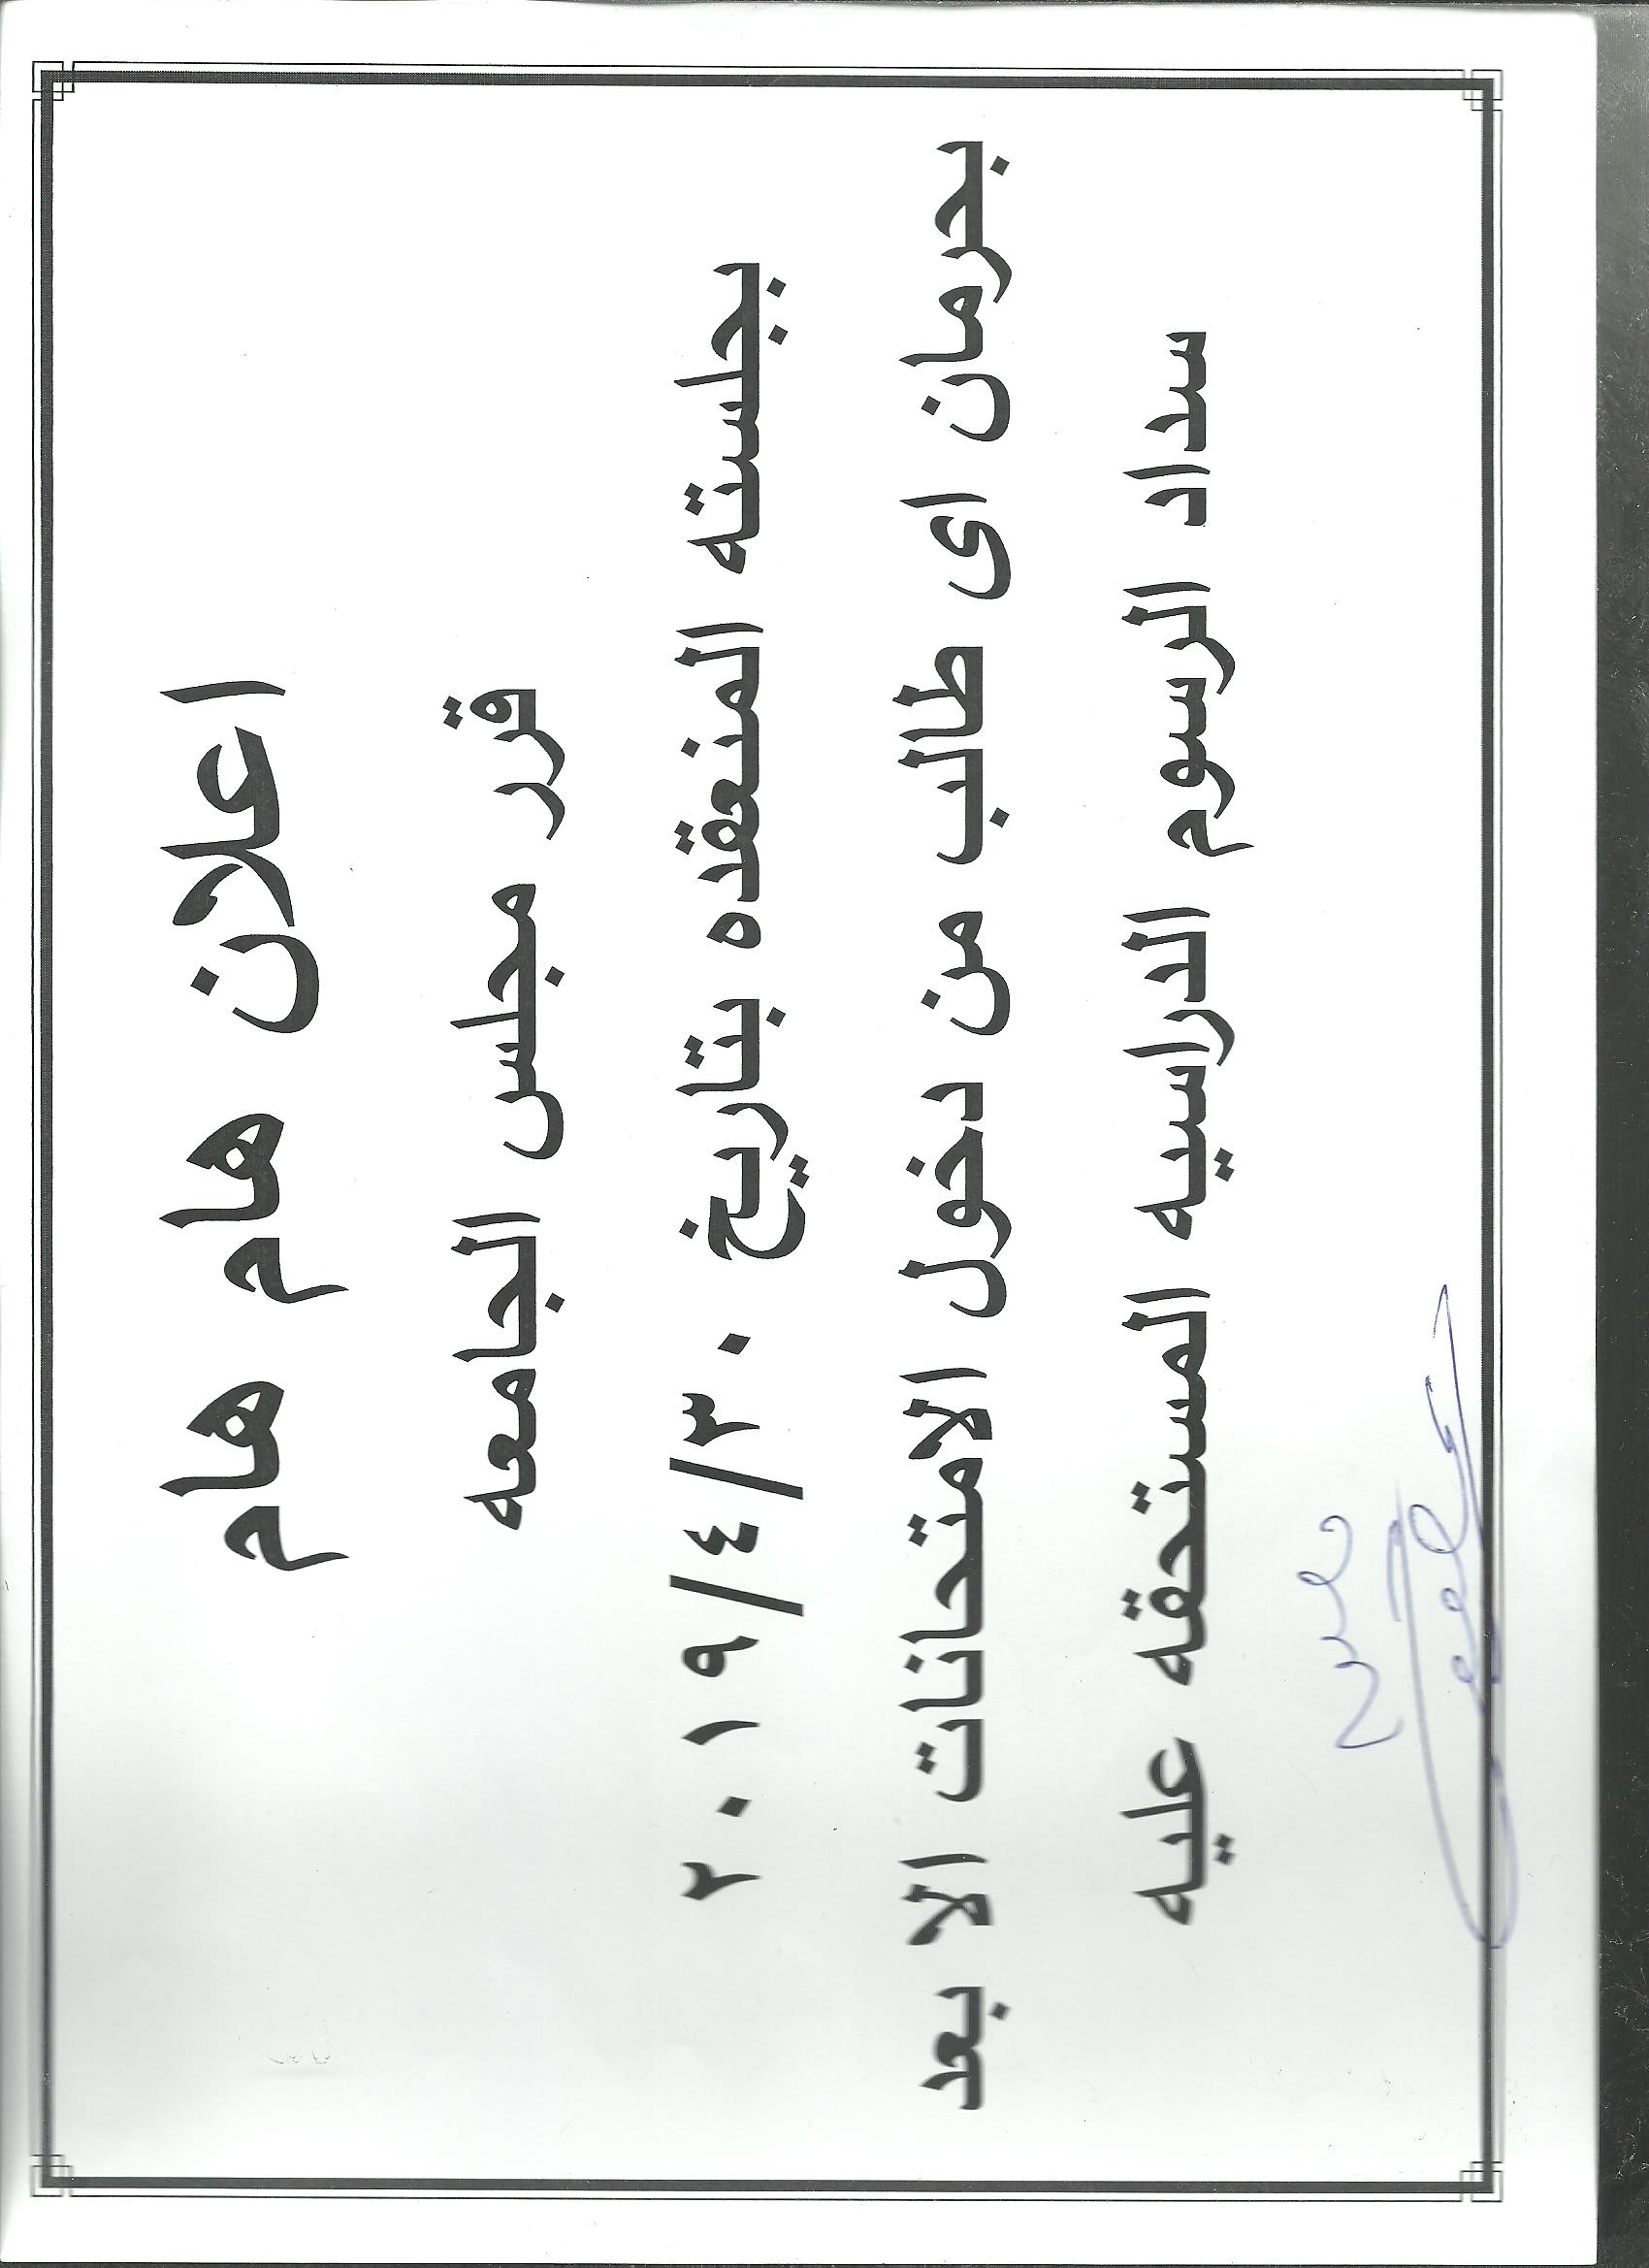 اعلان هام هام
قرر مجلس الجامعه
بجلسته المنعقده بتاريخ ٢٠١٩/٤/٣٠
بحرمان اى طالب من دخول الامتحانات الا بعد
سداد الرسوم الدراسيه المستحقه عليه